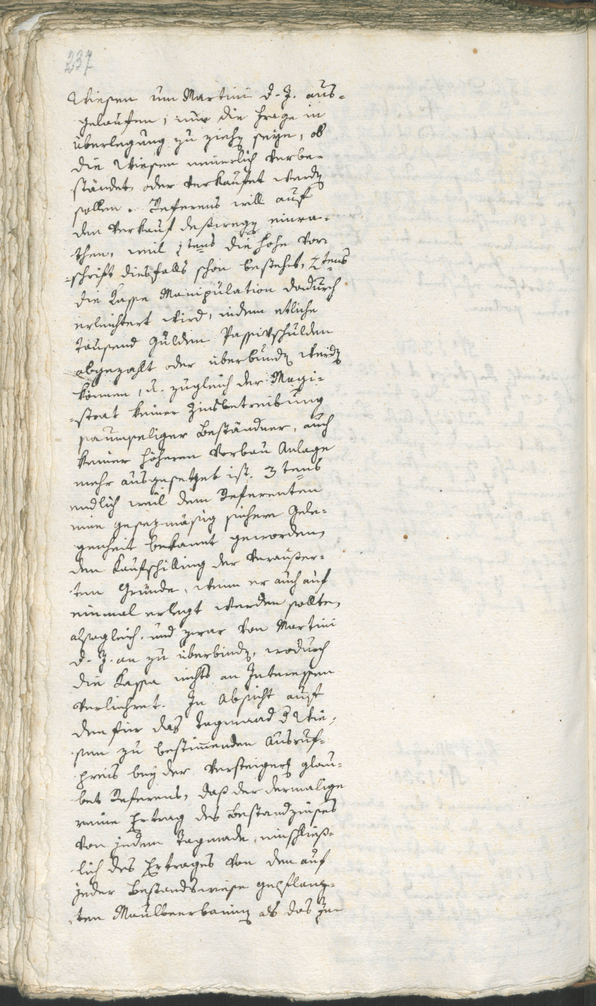 237
Wiesen um Martini d. J. aus-
gelaufen, nun die Frage in
Überlegung zu ziehen seyn, ob
die Wiesen neuerlich verbe-
standet oder verkaufet werden
sollen. Referens will auf
den Verkauf deßwegen einra-
then, weil 1tens die hohe Vor-
schrift diesfalls schon bestehet, 2tens
die Kasse Manipulation dadurch
erleichtert wird, indem etliche
tausend Gulden Passivschulden
abgezahlt oder überbunden werden
können, u. zugleich der Magi-
strat keiner Zinsbetreibung
saumseliger Beständner, auch
keiner höheren Vorbau Anlage
mehr ausgesetzet ist. 3tens
endlich weil dem Referenten
eine gesezmäsig sichere Gele-
genheit bekannt geworden,
den Kaufschilling der veräußer-
ten Gründe, wenn er auch auf
einmal erlegt werden sollte,
alsogleich, und zwar von Martini
d. J. an zu überbinden, wodurch
die Kassa nichts an Interessen
verliehret. In Absicht auf
den für das Tagmaad d Wie-
sen zu bestimmenden Ausruf-
preis bey der Versteigerg glau-
bet Referens, daß der dermalige
reine Ertrag des Bestandzinses
von jedem Tagmade, einschließ-
lich des Ertrages von den auf
jeder Bestandswiese gepflanz-
ten Maulbeerbäumen als das